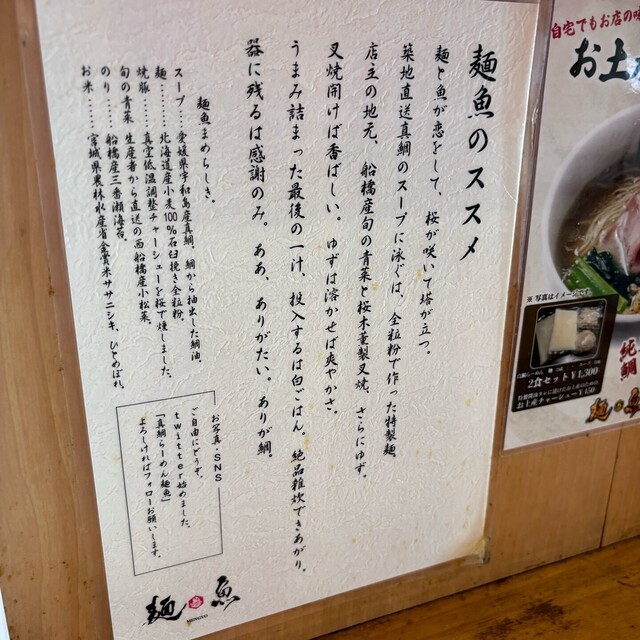 麺魚のススメ
麺と魚が恋をして、桜が咲いて塔が立つ。
築地直送真鯛のスープに泳ぐは、全粒粉で作った特製麺。
店主の地元、船橋産旬の青菜と桜木薫製叉焼、さらにゆず。
叉焼開けば香ばしい。ゆずは溶かせば爽やかさ。
うまみ詰まった最後の一汁、投入するは白ごはん。絶品雑炊できあがり。
器に残るは感謝のみ。ああ、ありがたい。ありが鯛。
麺魚まめちしき。
スープ……愛媛県宇和島産真鯛、鯛から抽出した鯛油。
麺……北海道産小麦100%石臼挽き全粒粉。
焼豚……真空低温調整チャーシューを桜で燻しました。
旬の青菜 生産者から直送の西船橋産小松菜。
のり……船橋産三番瀬海苔。
お米……宮城県農林水産省金賞米ササニシキ、ひとめぼれ。
お写真・SNS
ご自由にどうぞ。
twitter始めました。
「真鯛らーめん麺魚」
よろしければフォローお願いします。
麺 魚
MENGYO
自宅でもお店の味
お土
※写真はイメージです。
2食セット¥1,300
お土産チャーシュー¥450
純鯛
麺